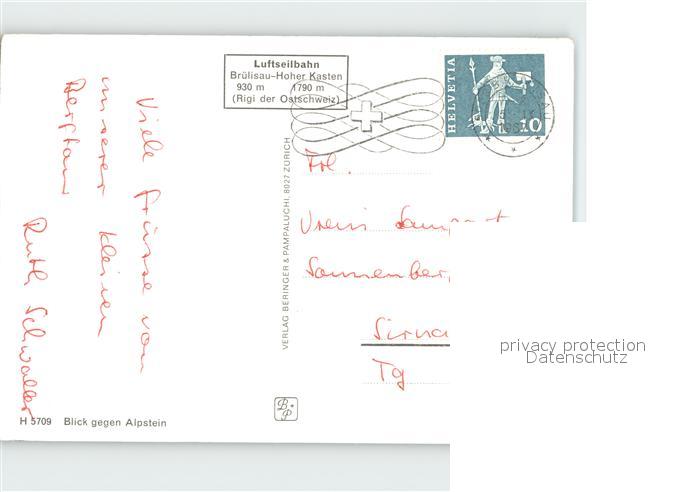 Luftseilbahn
Brülisau-Hoher Kasten
930 m 1790 m
(Rigi der Ostschweiz)
HELVETIA
10
Viele Grüsse von
unserer kleinen
Bergtour
Ruth Schwaller
VERLAG BERINGER & PAMPALUCHI, 8027 ZÜRICH
Frl.
Vreni
Sonnenberg
Sirna
Tg
privacy protection
Datenschutz
B.P
H 5709 Blick gegen Alpstein